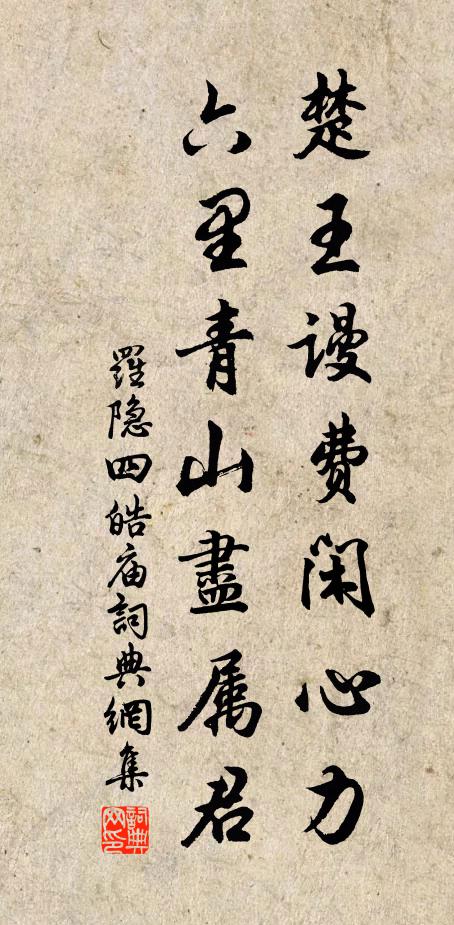 楚王谩费闲心力
六里青山盡属君
羅隐四皓庙詞典網集
詞典网印